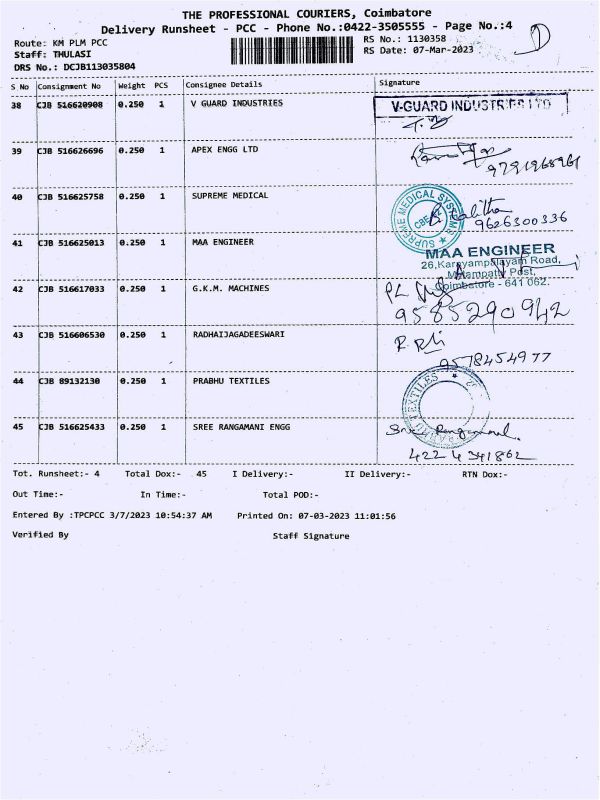 THE PROFESSIONAL COURIERS, Coimbatore
Delivery Runsheet - PCC - Phone No.:0422-3505555 - Page No.:4
D
Route: KM PLM PCC
RS No.: 1130358
Staff: THULASI
RS Date: 07-Mar-2023
DRS No.: DCJB113035804
S No Consignment No Weight PCS Consignee Details Signature
38 CJB 516620908 0.250 1 V GUARD INDUSTRIES V-GUARD INDUSTRIES LTD
39 CJB 516626696 0.250 1 APEX ENGG LTD
9791968961
40 CJB 516625758 0.250 1 SUPREME MEDICAL SUPREME MEDICAL SYSTEMS CBE
Lalitha
9626300336
41 CJB 516625013 0.250 1 MAA ENGINEER MAA ENGINEER
26,Karayampalayam Road,
Mylampatty Post,
Coimbatore - 641 062.
42 CJB 516617033 0.250 1 G.K.M. MACHINES
9585290942
43 CJB 516606530 0.250 1 RADHAIJAGADEESWARI
9578454977
44 CJB 89132130 0.250 1 PRABHU TEXTILES PRABHU TEXTILES
45 CJB 516625433 0.250 1 SREE RANGAMANI ENGG
422 4341862
Tot. Runsheet:- 4 Total Dox:- 45 I Delivery:- II Delivery:- RTN Dox:-
Out Time:- In Time:- Total POD:-
Entered By :TPCPCC 3/7/2023 10:54:37 AM Printed On: 07-03-2023 11:01:56
Verified By Staff Signature